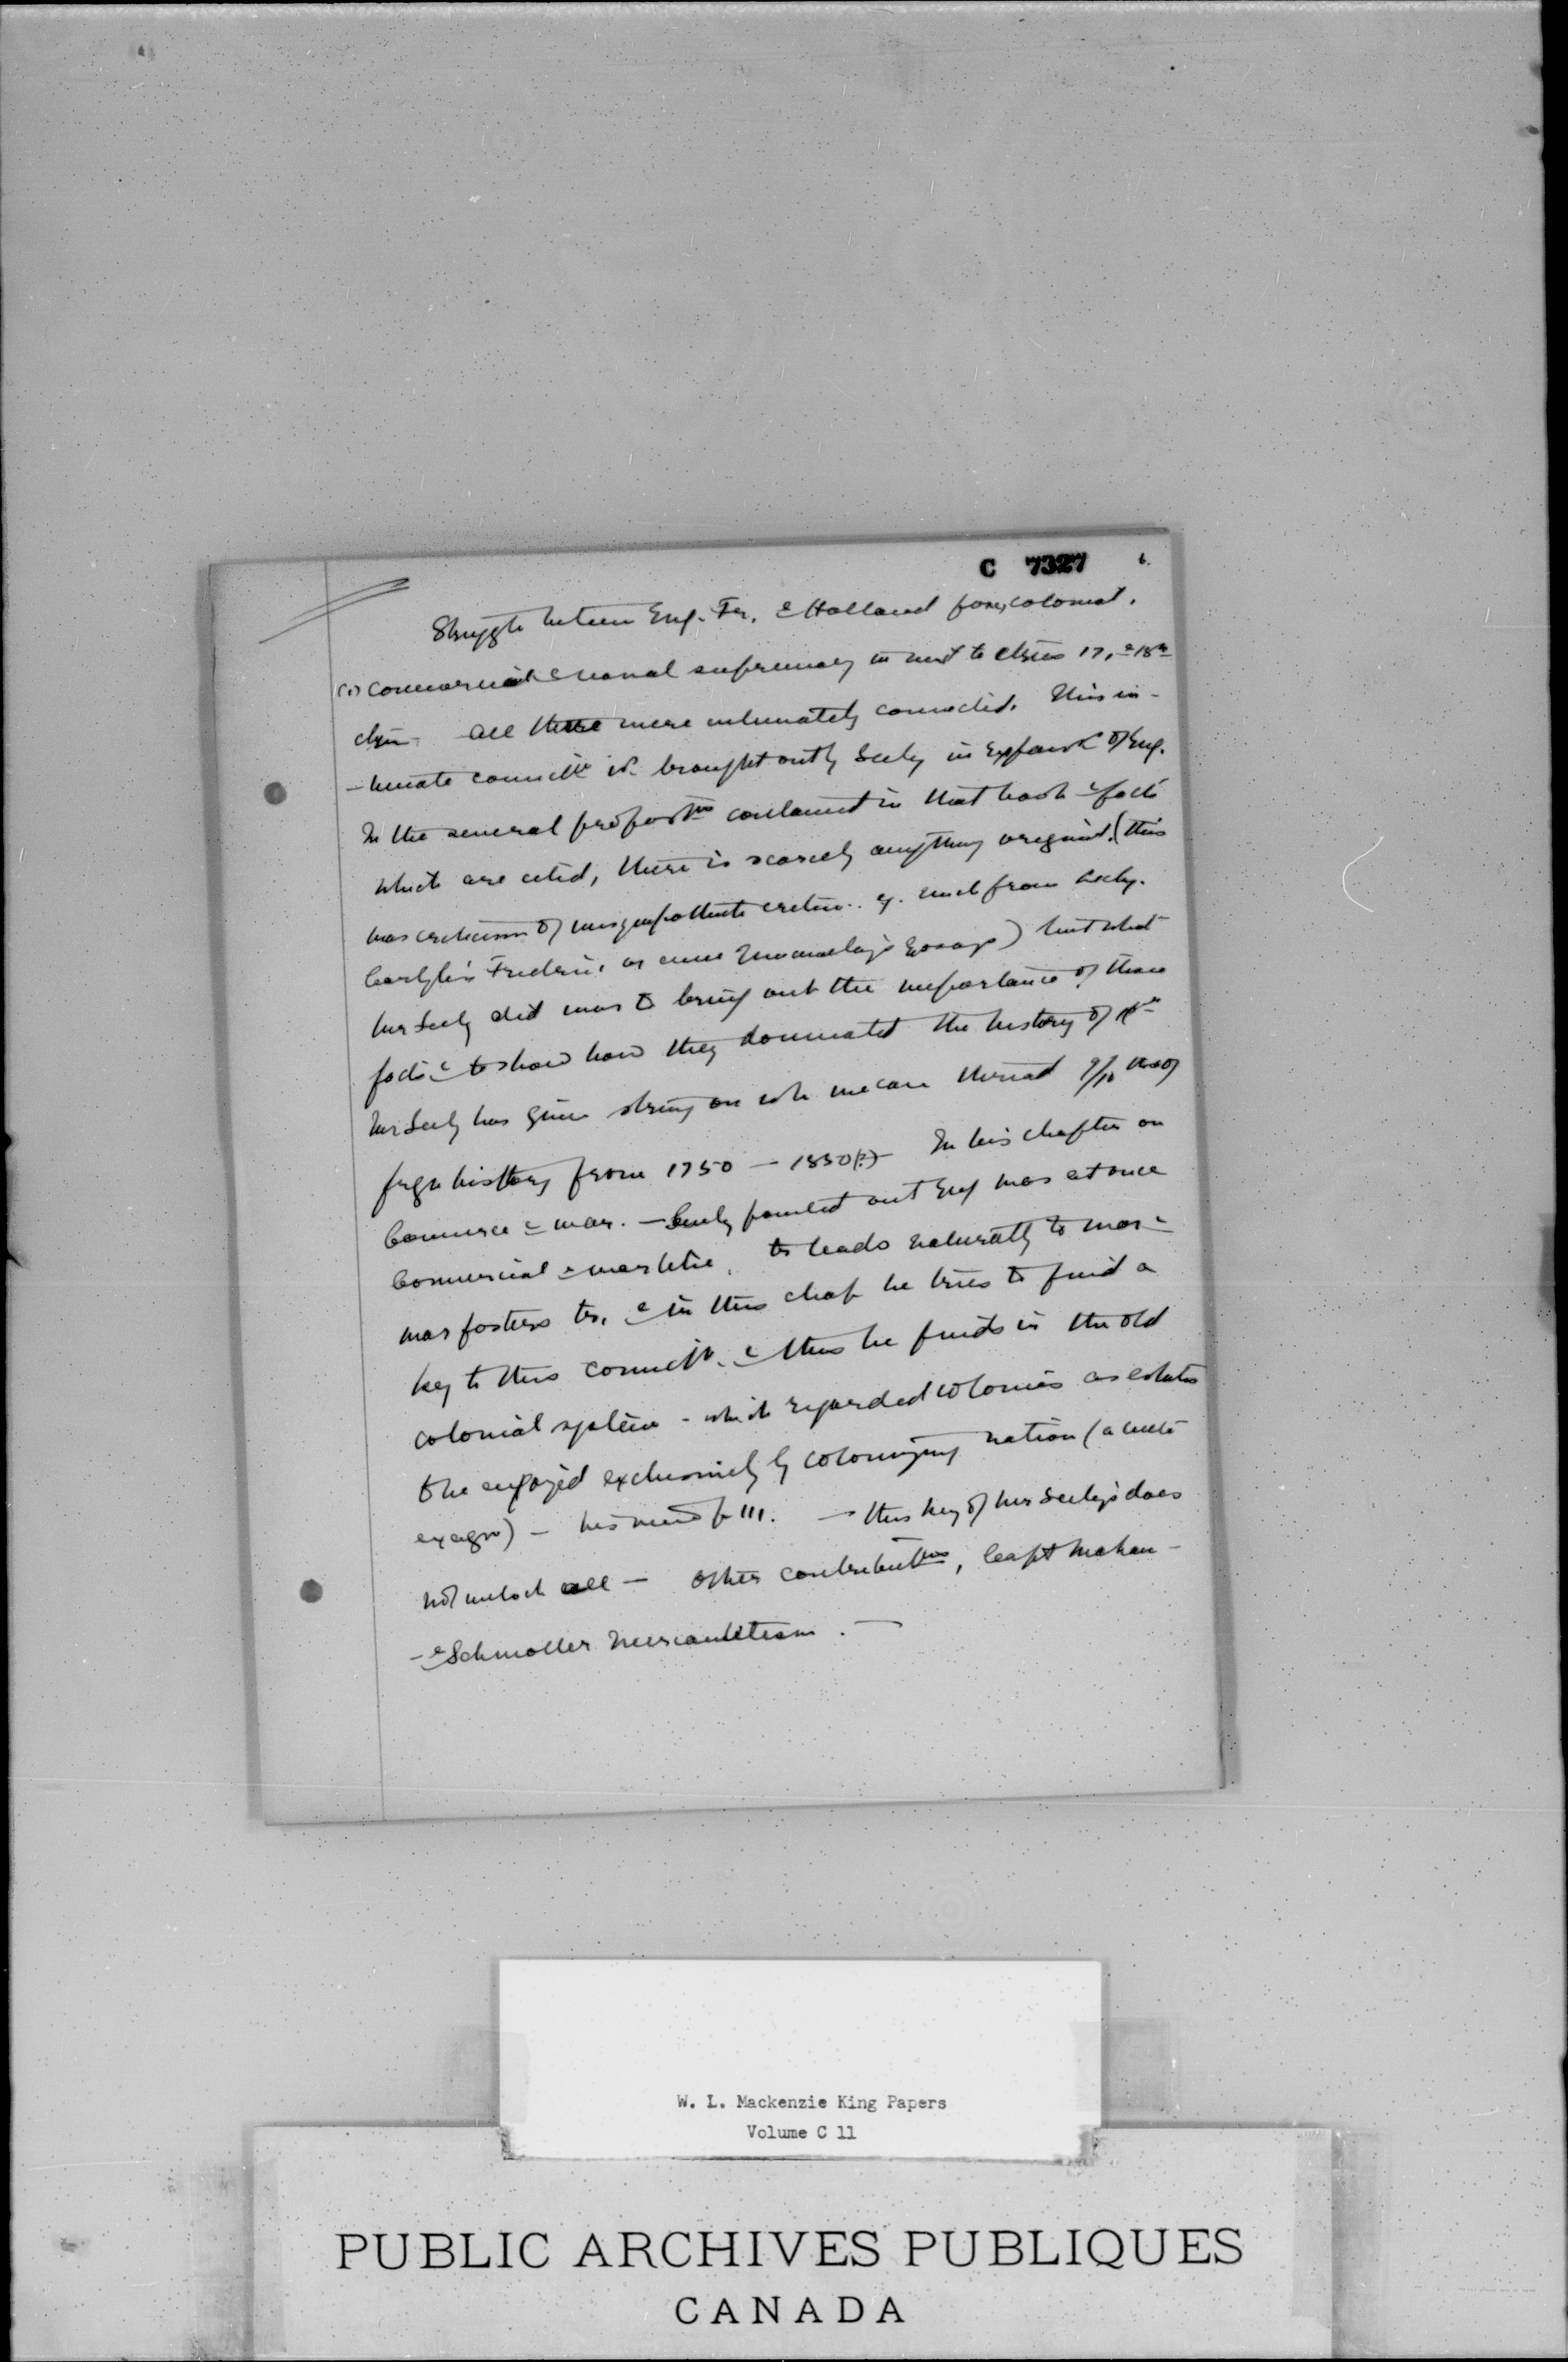 C 7327 6.
Struggle between Eng. Fr. & Holland for colonial.
(1) commercial & naval supremacy in 17, & 18th
All these were intimately connected. This in-
-timate connectn brought out by Seely in Expansn of Eng.
In the several proportns contained in that book & facts
which are cited, there is scarcely anything original. (this
was criticism of unsympathetic critics. eg. much from Lecky.
Carlyle's Frederic, or even Macaulay's Essays) but what
Mr Seely did was to bring out the importance of these
facts & to show how they dominated the history of
Mr Seely has given string on wh we can thread 9/10 of
history from 1750 — 1850(?) — In his chapter on
Commerce & war. — Seely pointed out Eng was at once
Commercial & warlike, tr leads naturally to war &
war fosters tr. & in this chap he tries to find a
key to this connectn. & this he finds in the old
colonial system - which regarded colonies as estates
to be enjoyed exclusively by colonizing nation (a little
exagn) — p 111. — this key of Mr Seely's does
not unlock all — other contributns, Capt Mahan —
- & Schmoller Mercantilism. —
W. L. Mackenzie King Papers
Volume C 11
PUBLIC ARCHIVES PUBLIQUES
CANADA